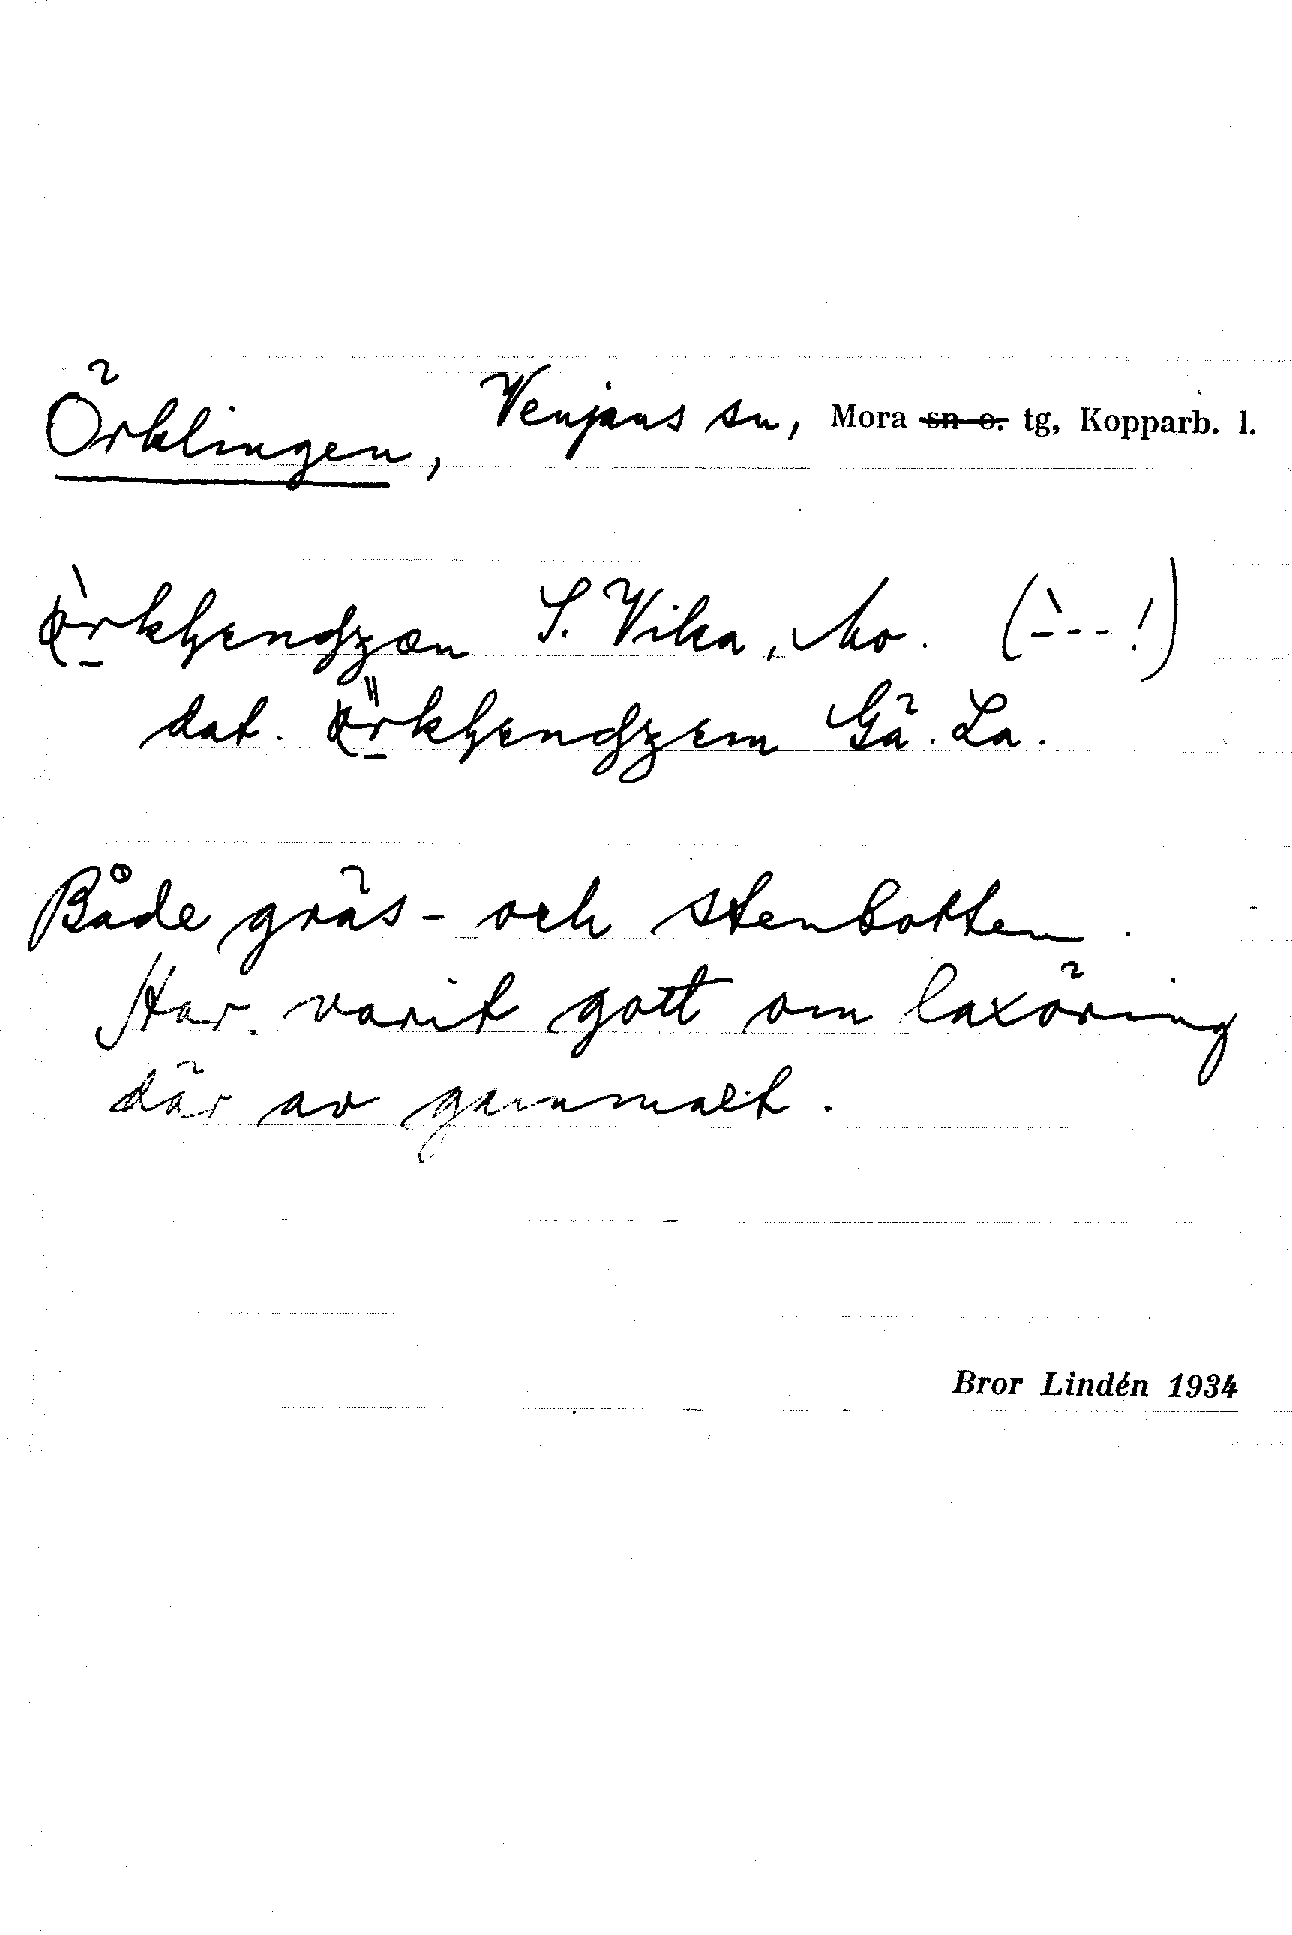 Örklingen, Venjans sn, Mora sn o. tg, Kopparb. l.
S. Vika, Mo. (`---!)
dat. Gä. La.
Både gräs- och stenbotten.
Har varit gott om laxöring
där av gammalt.
Bror Lindén 1934